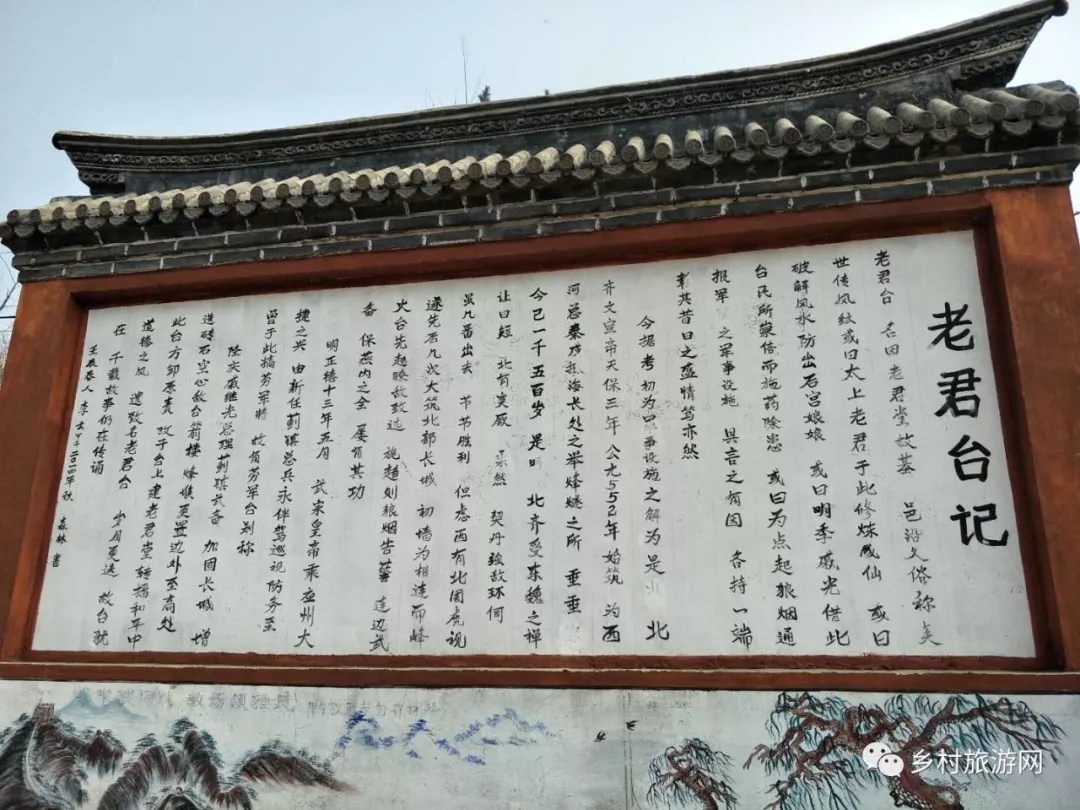 老君台记
老君台 名由老君堂故基 邑治久俗称矣
世传风纹或曰太上老君于此修炼成仙 或曰
破解风水 防出石宫娘娘 或曰明季戚光借此
台民所蒙倍而施药除患 或曰为点起狼烟通
报军 之军事设施 具言之有因 各持一端
彰其昔日之盛情笃亦然
今据考初为军事设施之解为是 北
齐文宣帝天保三年 公元552年 始筑 为西
河总秦戍抵海长处之举烽燧之所 重重
今已一千五百岁 是时 北齐受东魏之禅
让日短 北有突厥 柔然 契丹强敌环伺
虽几番出击 节节胜利 但虑西有北周虎视
遂先后几次大筑北部长城 初墙为相连而峰
火台先起瞭敌敌远 施趟则狼烟告警 连边武
备 保燕内之全 屡有其功
明正德十三年五月 武宗皇帝乘 州大
捷之兴 由新任蓟镇总兵永伴驾巡视防务至
曾于此犒劳军将 故有劳军台别称
陆矣戚继光总理蓟镇武备 加固长城 增
造砖石空心敌台箭楼 烽堠更置边外至高处
此台方卸原责 改于台上建老君堂转播和平中
道德之风 遂改名老君台
在 千载故事仍在传诵 岁月更迭 故台犹
壬辰春人 李 二〇一四年秋 森林 书
乡村旅游网